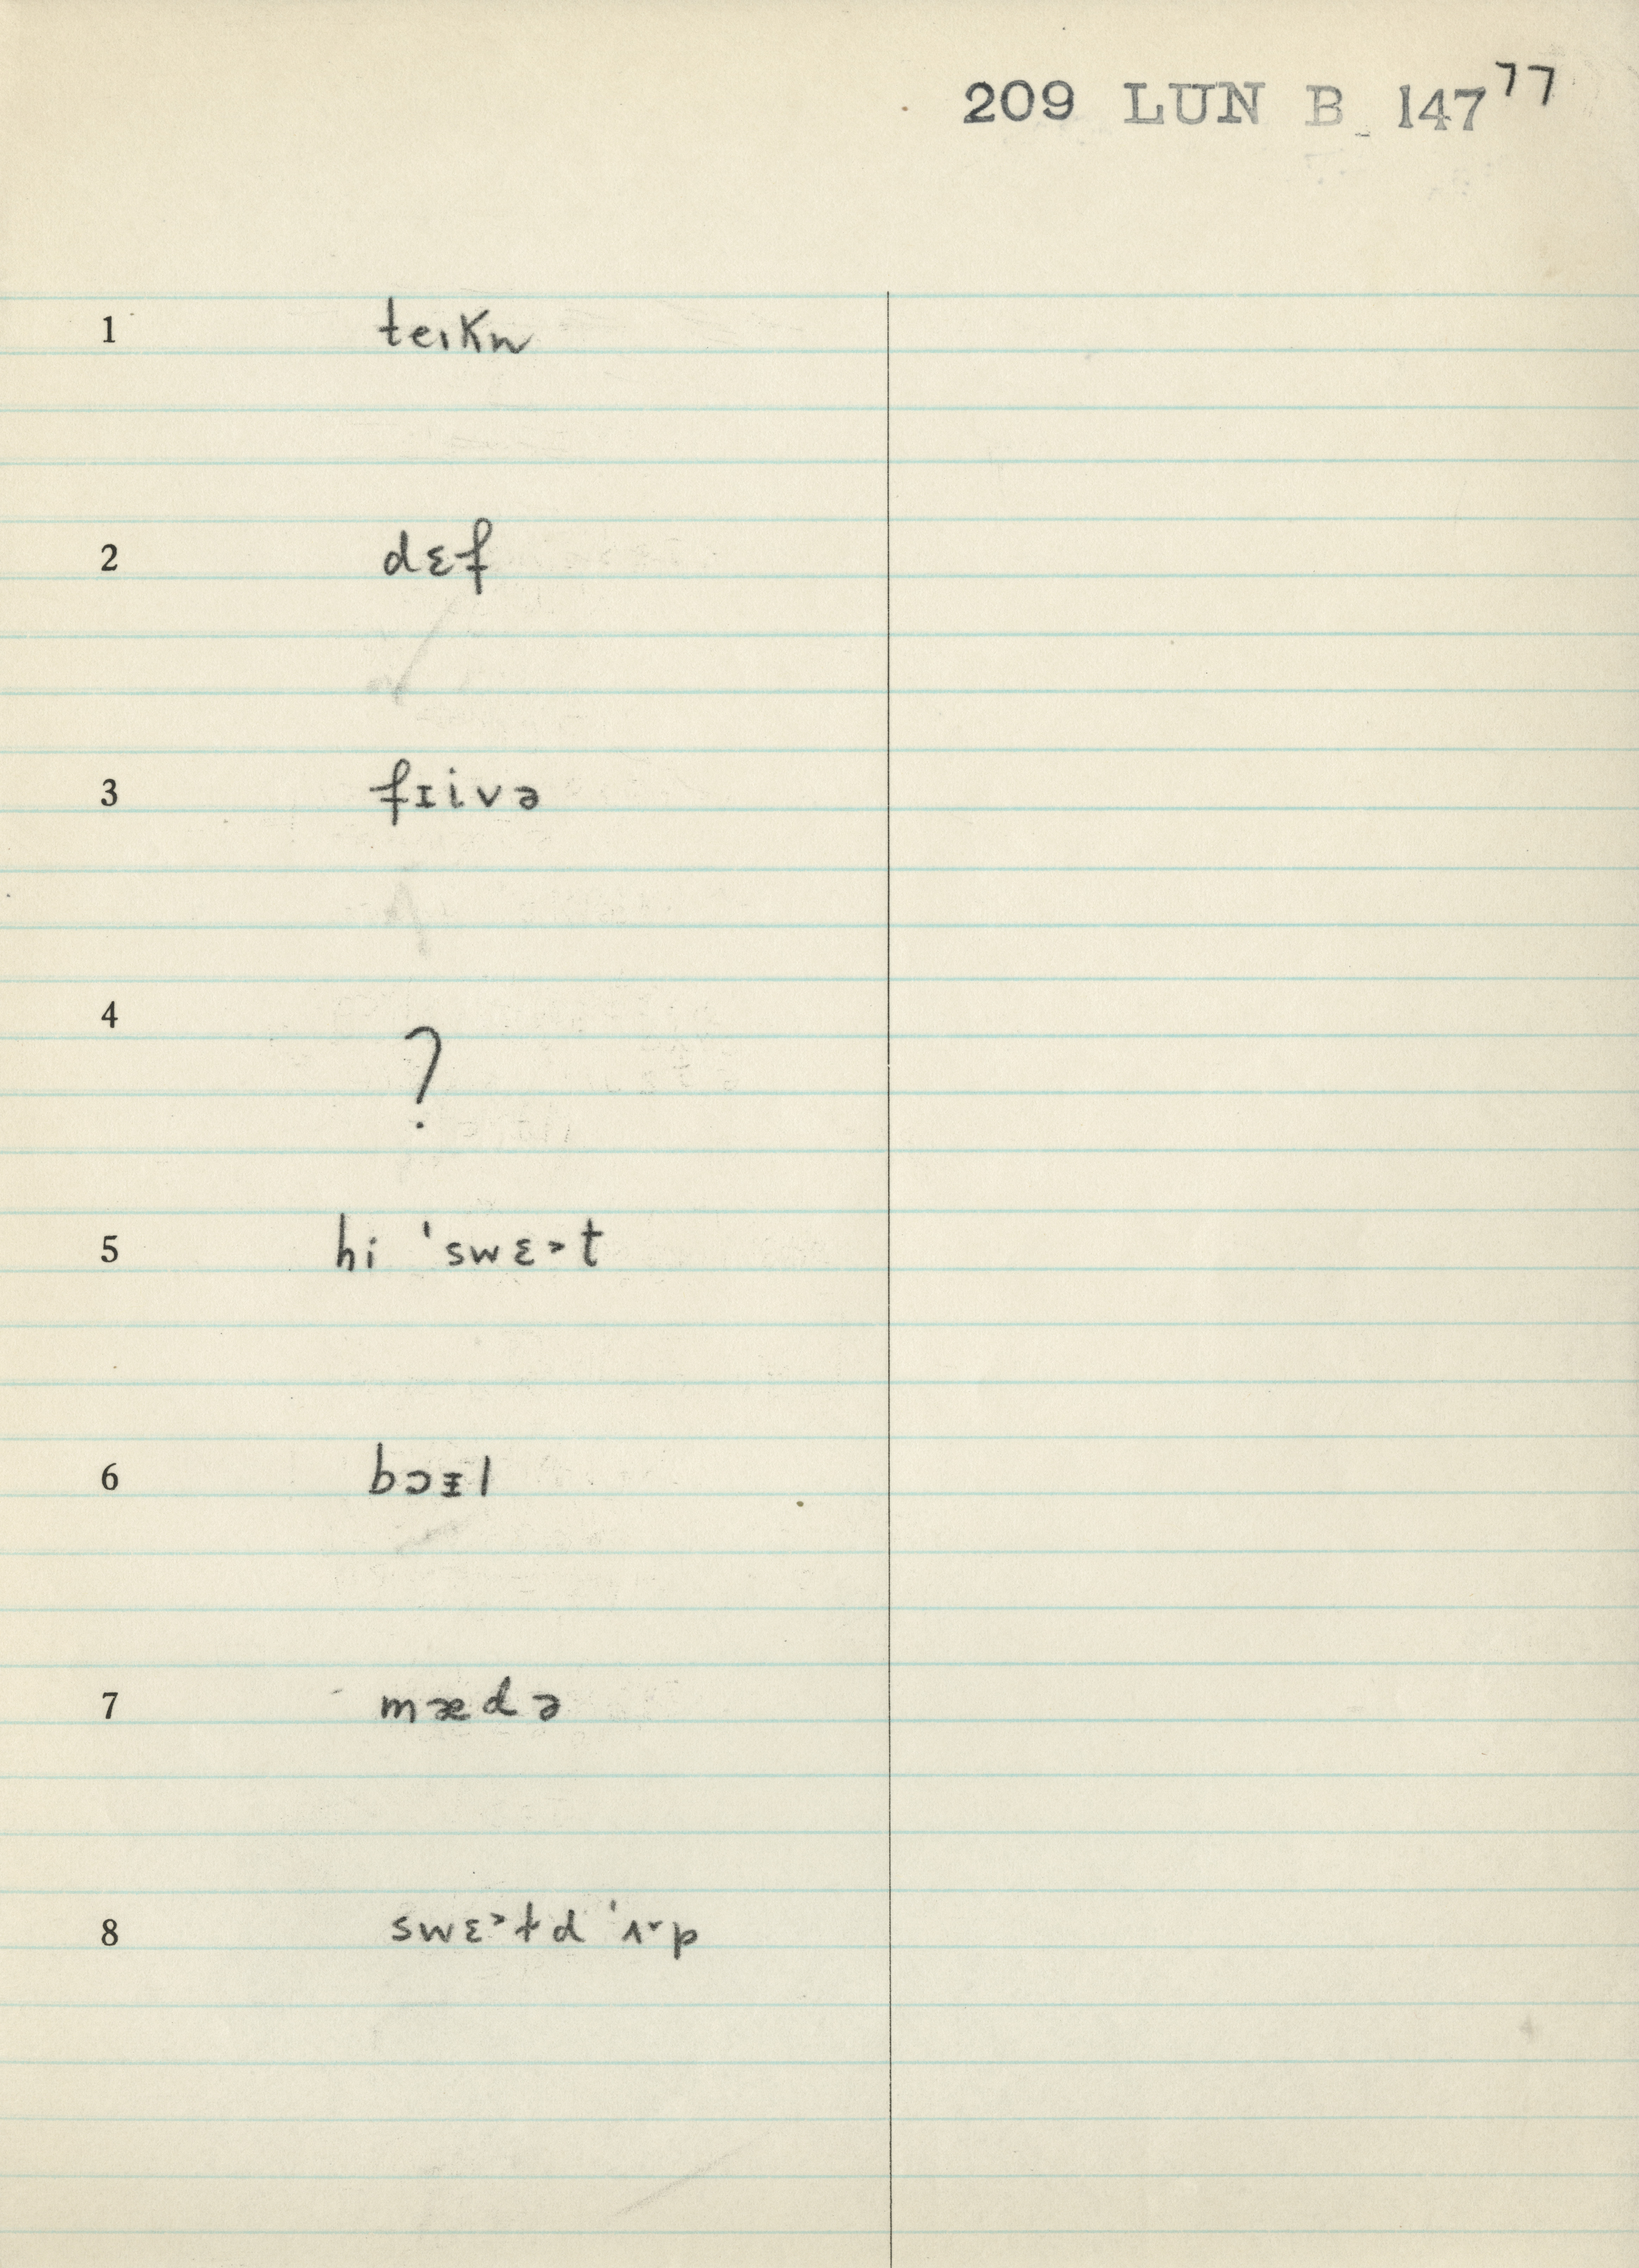 209 LUN B 147 77
1 teıkn
2 dɛf
3 fɪivə
4 ?
5 hi ˈswɛ˃t
6 bɔᵻl
7 mædə
8 swɛ˃td ˈʌ˅p